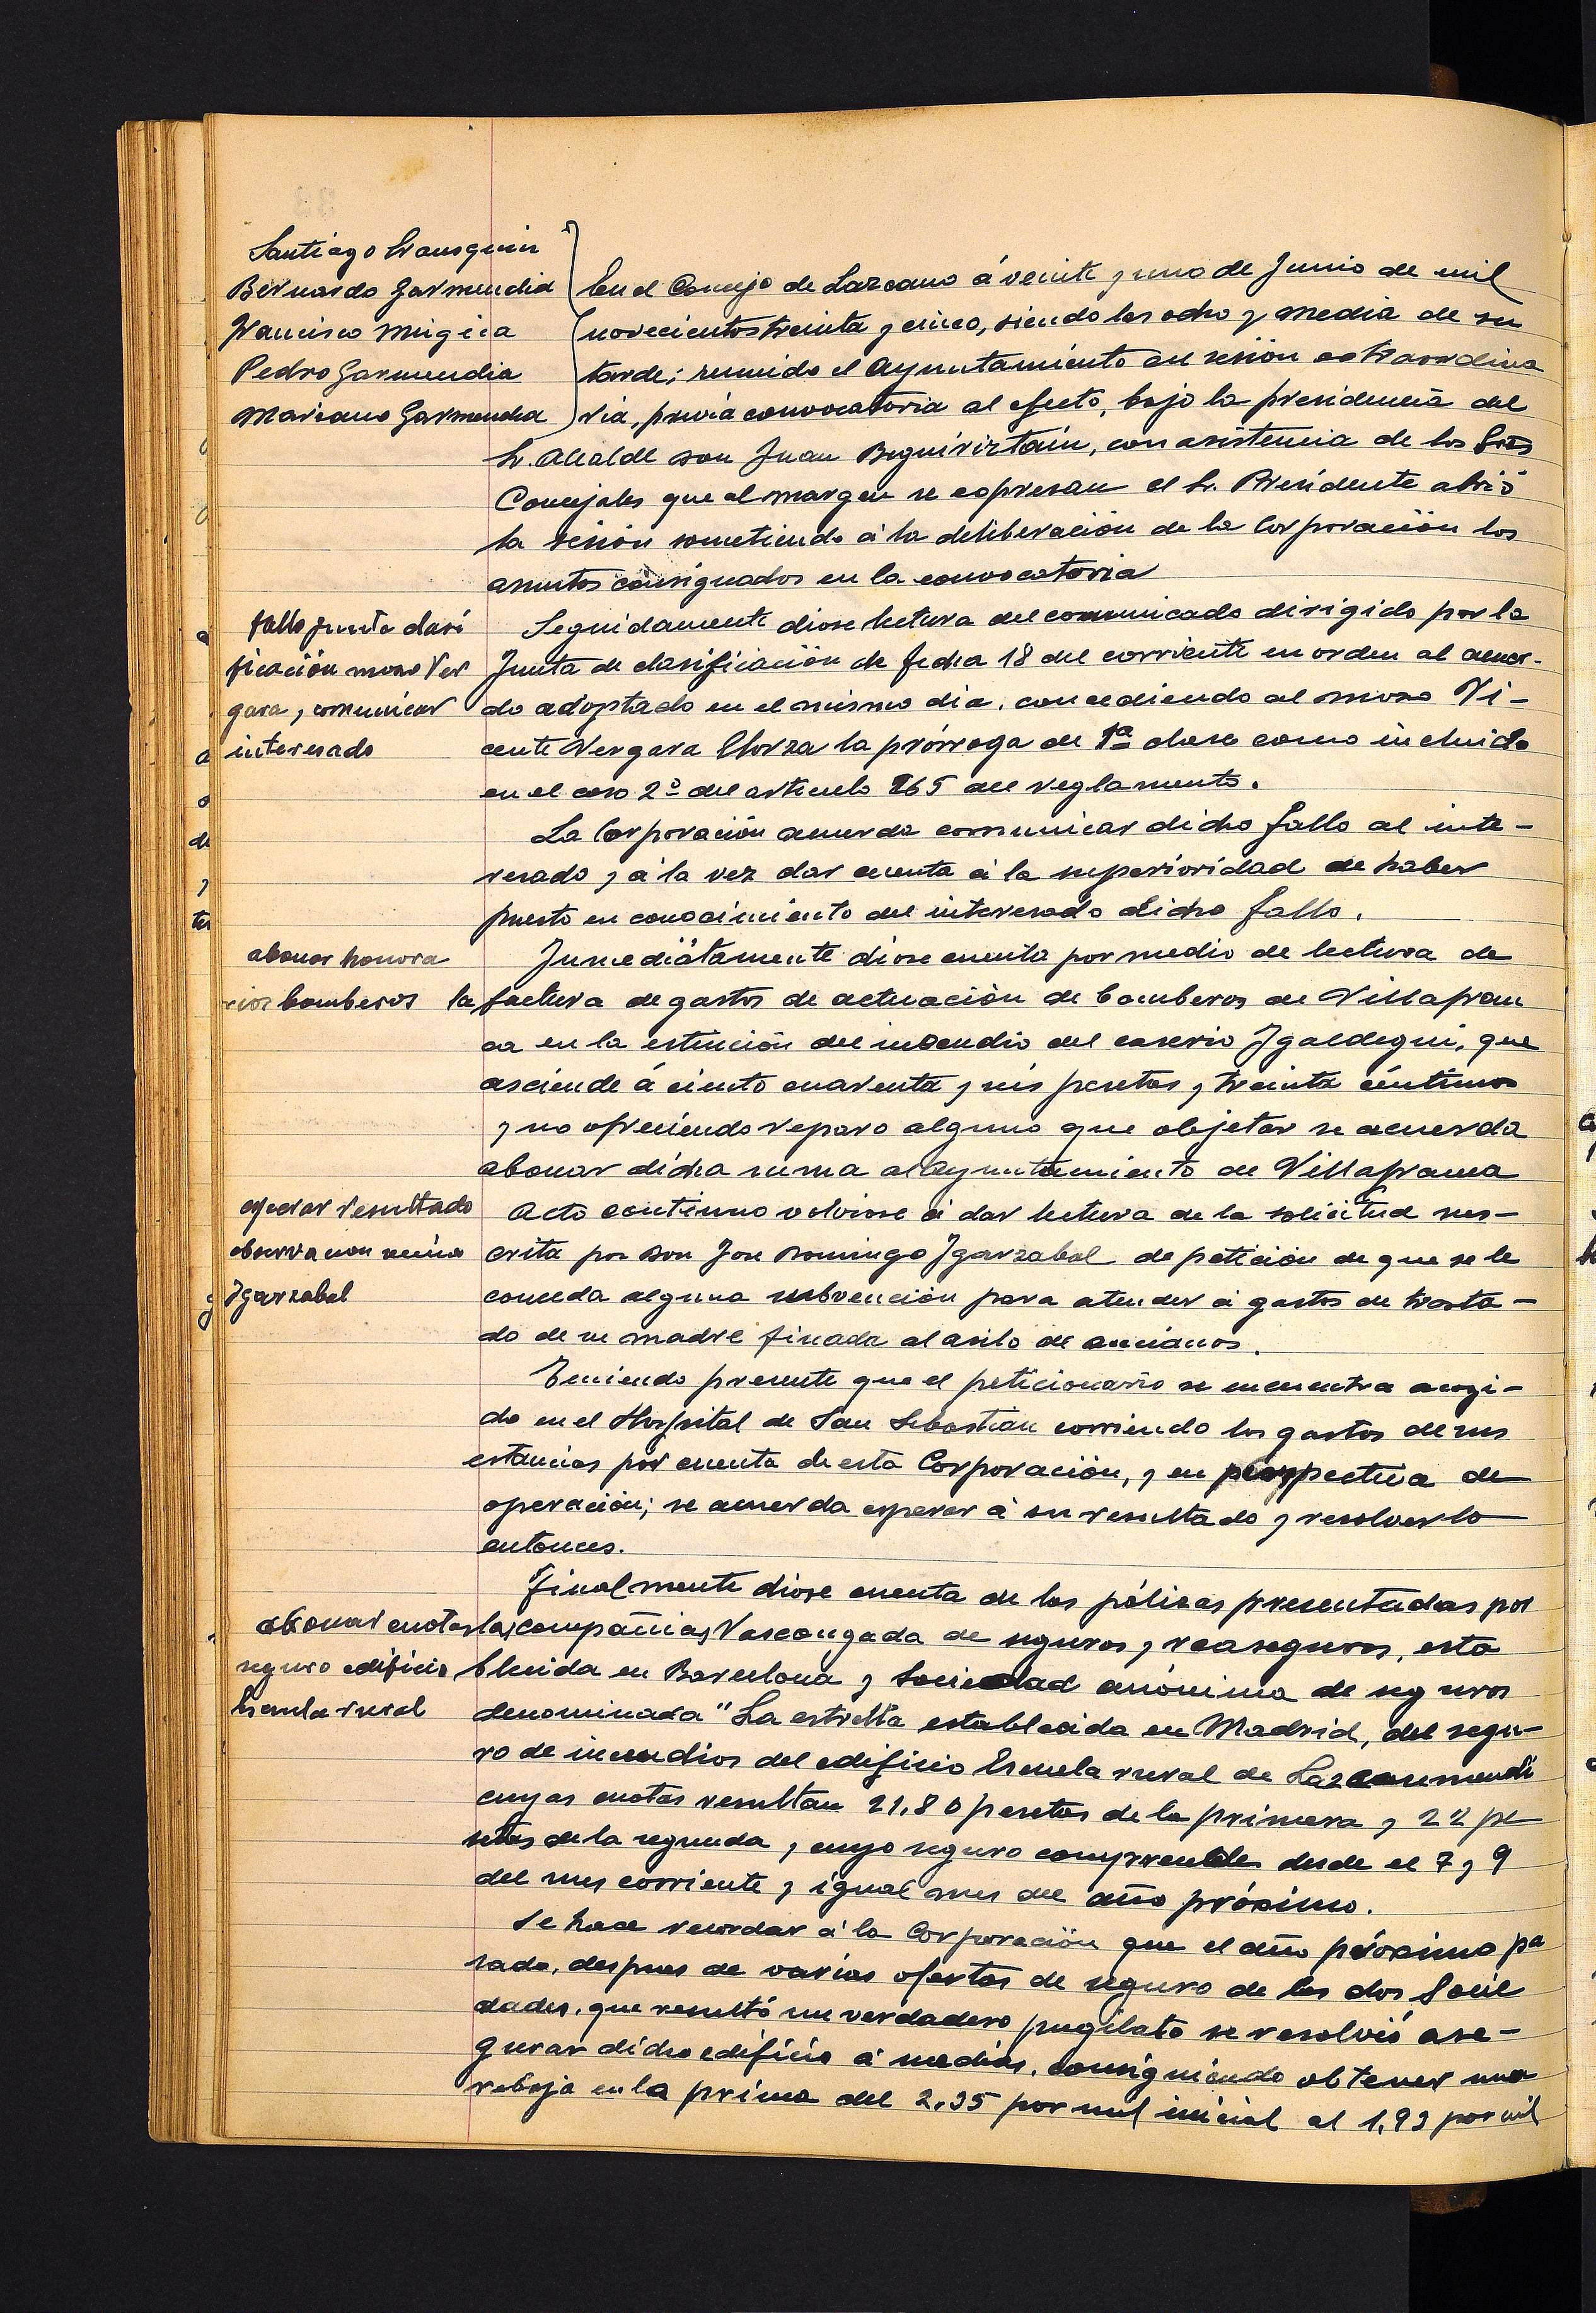 Santiago Irausquin
Bernardo Garmendia
Francisco Mugica
Pedro Garmendia
Mariano Garmendia
En el Concejo de Lazcano á veinte y uno de Junio de mil
novecientos treinta y cinco, siendo las ocho y media de su
tarde; reunido el Ayuntamiento en sesión extraordina
ria, previa convocatoria al efecto, bajo la presidencia del
Sr. Alcalde Don Juan Beguiriztain, con asistencia de los Sres
Concejales que al margen se expresan el Sr. Presidente abrió
la sesión sometiendo á la deliberación de la Corporación los
asuntos consignados en la convocatoria
fallo Junta clasi
ficación mozo Ver
gara, comunicar
interesado
Seguidamente diose lectura del comunicado dirigido por la
Junta de clasificación de fecha 18 del corriente en orden al acuer-
do adoptado en el mismo dia, concediendo al mozo Vi-
cente Vergara Elorza la prórroga de 1ª clase como incluido
en el caso 2º del articulo 265 del reglamento.
La Corporación acuerda comunicar dicho fallo al inte-
resado y á la vez dar cuenta á la superioridad de haber
puesto en conocimiento del interesado dicho fallo.
abonar honora
rios bomberos
Inmediatamente diose cuenta por medio de lectura de
la factura de gastos de actuación de bomberos de Villafran
ca en la estinción del incendio del caserio Igaldegui, que
asciende á ciento cuarenta y seis pesetas y treinta céntimos
y no ofreciendo reparo alguno que objetar se acuerda
abonar dicha suma al Ayuntamiento de Villafranca
esperar resultado
observacion vecino
Igarzabal
Acto continuo volviose á dar lectura de la solicitud sus-
crita por Don Jose Domingo Igarzabal de petición de que se le
conceda alguna subvención para atender á gastos de trasla-
do de su madre finada al asilo de ancianos.
Teniendo presente que el peticionario se encuentra acogi-
do en el Hospital de San Sebastian corriendo los gastos de sus
estancias por cuenta de esta Corporación, y en perspectiva de
operación; se acuerda esperar á su resultado y resolverlo
entonces.
abonar cuotas
seguro edificio
Escuela rural
Finalmente diose cuenta de las pólizas presentadas por
las compañias Vascongada de seguros y reaseguros, esta
blecida en Barcelona y Sociedad anónima de seguros
denominada "La estrella establecida en Madrid, del segu-
ro de incendios del edificio Escuela rural de Lazcaumendi
cuyas cuotas resultan 21,80 pesetas de la primera y 22 pe
setas de la segunda, cuyo seguro comprende desde el 7 y 9
del mes corriente y igual mes del año próximo.
Se hace recordar á la Corporación que el año próximo pa
sado, despues de varias ofertas de seguro de las dos Socie
dades, que resultó un verdadero pugilato se resolvió ase-
gurar dicho edificio á medias, consiguiendo obtener una
rebaja en la prima del 2,35 por mil inicial al 1,93 por mil